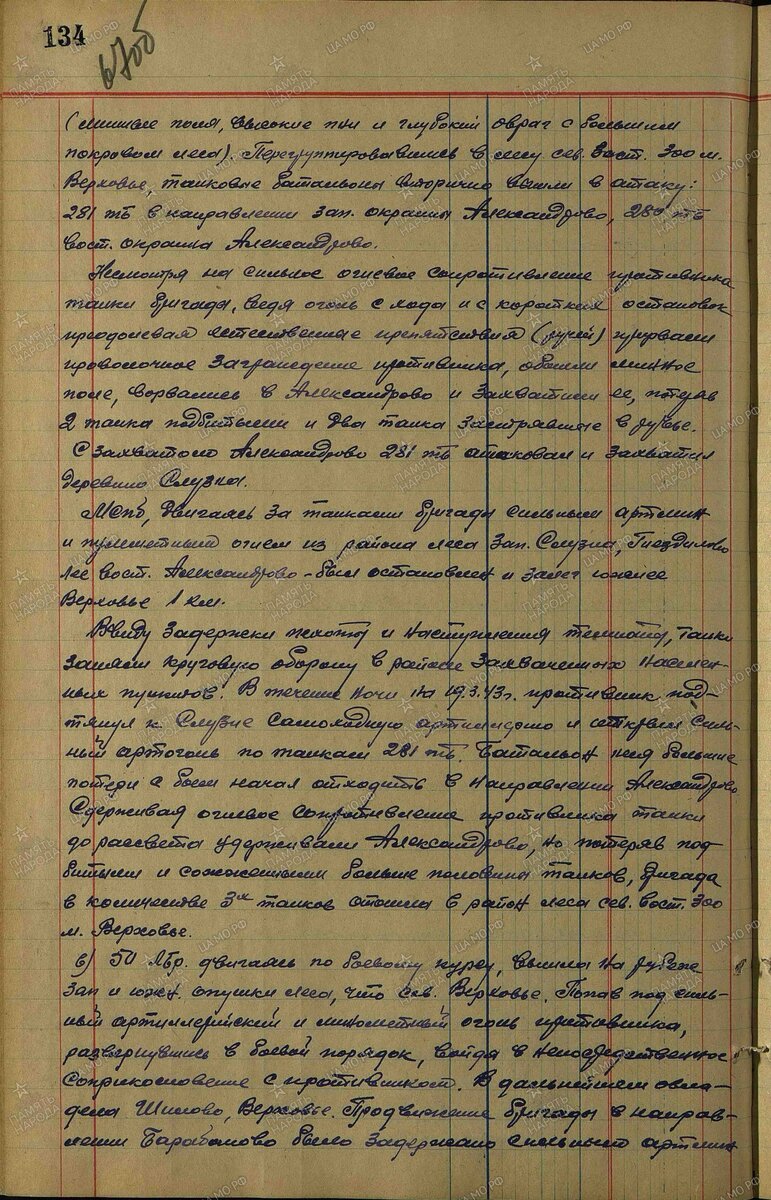 134
6700
(минные поля, высокие пни и глубокий овраг с большим
покровом леса). Перегруппировавшись в лесу сев. вост. 300 м.
Верховье, танковые батальоны вторично вышли в атаку:
281 тб в направлении зап. окраины Александрово, 280 тб
вост. окраина Александрово.
Несмотря на сильное огневое сопротивление противника
танки бригады, ведя огонь с хода и с коротких остановок
преодолевая естественные препятствия (ручей) прорвали
проволочное заграждение противника, обошли минное
поле, ворвались в Александрово и захватили ее, потеряв
2 танка подбитыми и два танка застрявшие в ручье.
С захватом Александрово 281 тб атаковал и захватил
деревню Слузна.
МСПБ, двигаясь за танками бригады сильным артмин
и пулеметным огнем из района леса зап. Слузна, Гнездилово
лес вост. Александрово - был остановлен и залег южнее
Верховье 1 км.
Ввиду задержки пехоты и наступления темноты, танки
заняли круговую оборону в районе захваченных населен-
ных пунктов. В течение ночи на 19.3.43г. противник под-
тянул к Слузне самоходную артиллерию и открыл силь-
ный артогонь по танкам 281 тб. Батальон неся большие
потери с боем начал отходить в направлении Александрово
Сдерживая огневое сопротивление противника танки
до рассвета удерживали Александрово, но потеряв под-
битыми и сожженными больше половины танков, бригада
в количестве 3х танков отошла в район леса сев. вост. 300
м. Верховье.
в) 50 лбр. двигаясь по боевому курсу, вышла на рубеж
зап и южн опушки леса, что сев. Верховье. Попав под силь-
ный артиллерийский и минометный огонь противника,
развернувшись в боевой порядок, войдя в непосредственное
соприкосновение с противником. В дальнейшем овла-
дела Шилово, Верховье. Продвижение бригады в направ-
лении Барабаново было задержано сильным артмин